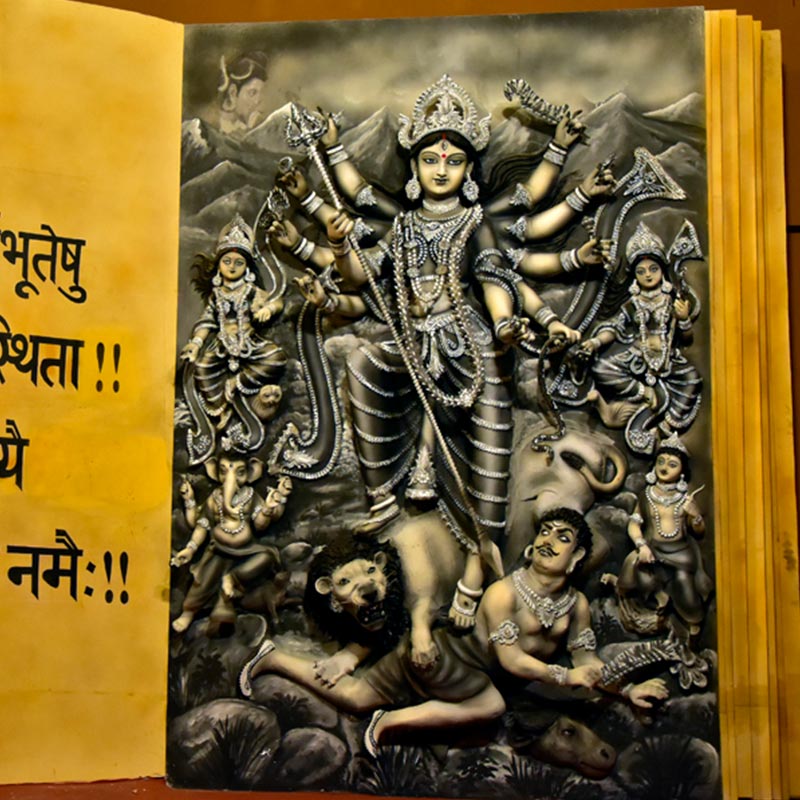 भूतेषु
स्थिता !!
नमैः!!